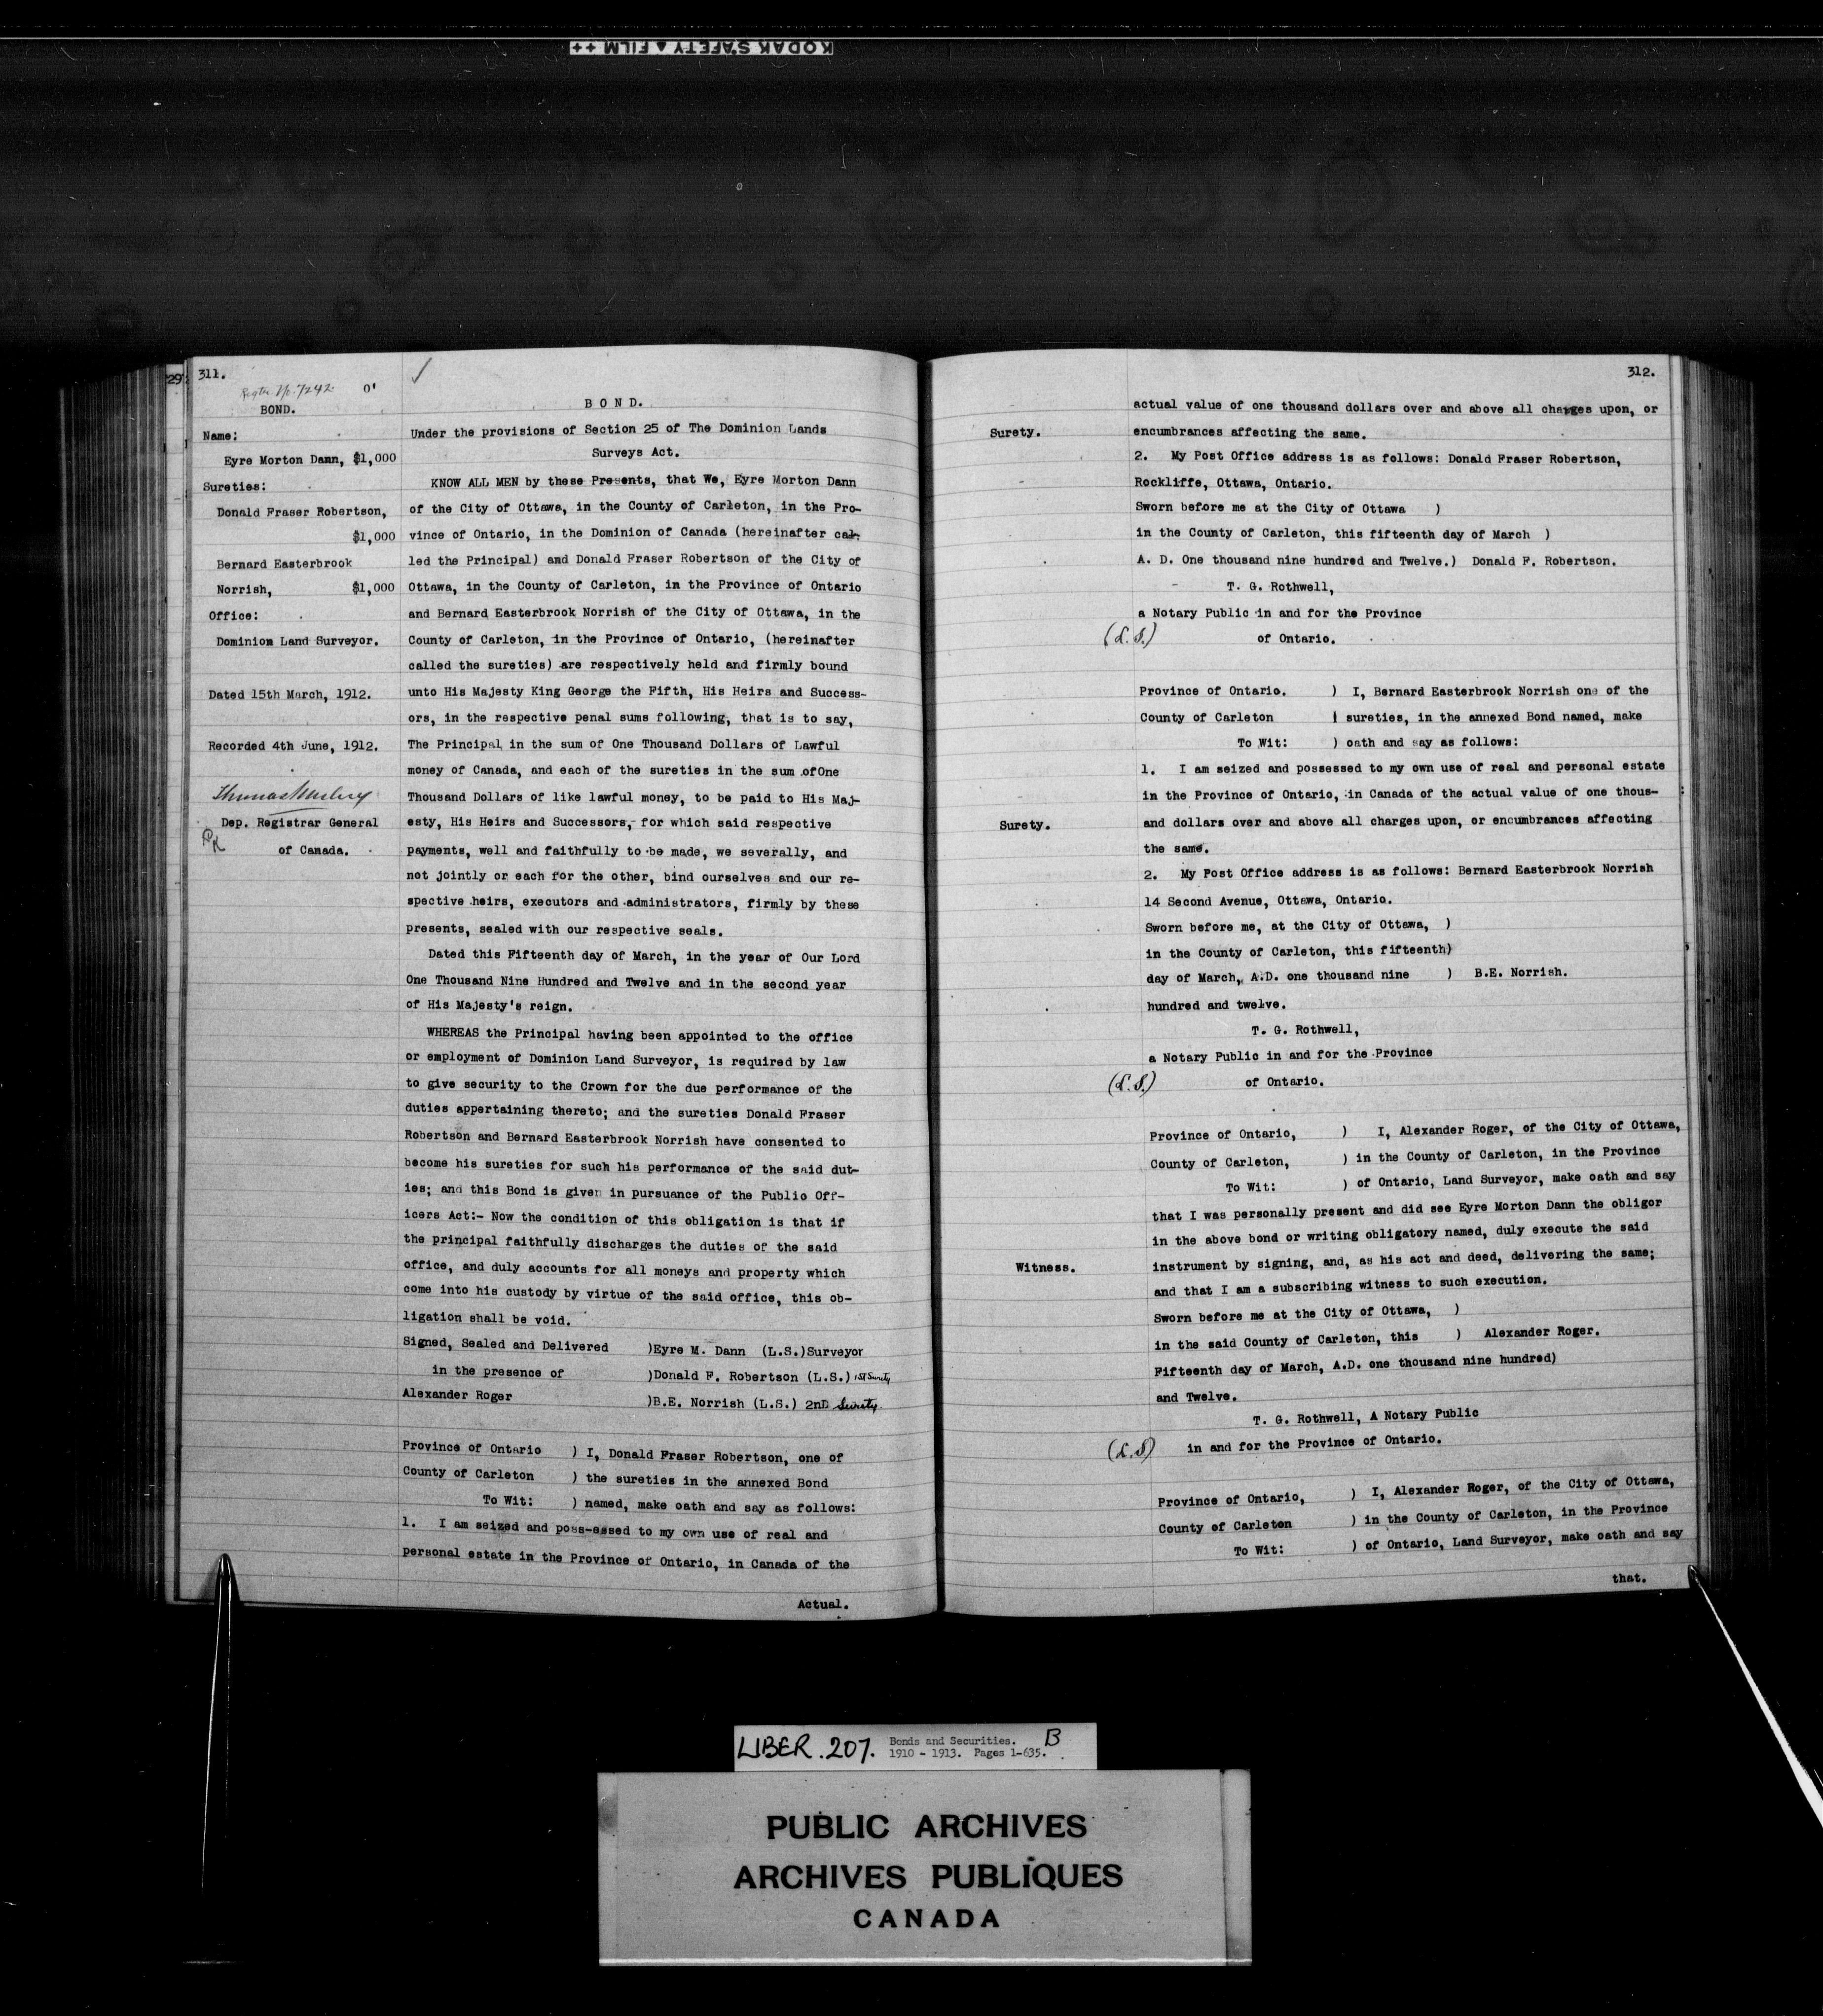 KODAK SAFETY FILM ++
29
311.
No. 7242
0'
BOND.
Name:
Eyre Morton Dann, $1,000
Sureties:
Donald Fraser Robertson,
$1,000
Bernard Easterbrook
Norrish, $1,000
Office:
Dominion Land Surveyor.
Dated 15th March, 1912.
Recorded 4th June, 1912.
Thomas Mulvey
Dep. Registrar General
of Canada.
B O N D.
Under the provisions of Section 25 of The Dominion Lands
Surveys Act.
KNOW ALL MEN by these Presents, that We, Eyre Morton Dann
of the City of Ottawa, in the County of Carleton, in the Pro-
vince of Ontario, in the Dominion of Canada (hereinafter cal-
led the Principal) and Donald Fraser Robertson of the City of
Ottawa, in the County of Carleton, in the Province of Ontario
and Bernard Easterbrook Norrish of the City of Ottawa, in the
County of Carleton, in the Province of Ontario, (hereinafter
called the sureties) are respectively held and firmly bound
unto His Majesty King George the Fifth, His Heirs and Success-
ors, in the respective penal sums following, that is to say,
The Principal in the sum of One Thousand Dollars of Lawful
money of Canada, and each of the sureties in the sum ofOne
Thousand Dollars of like lawful money, to be paid to His Maj-
esty, His Heirs and Successors, for which said respective
payments, well and faithfully to be made, we severally, and
not jointly or each for the other, bind ourselves and our re-
spective heirs, executors and administrators, firmly by these
presents, sealed with our respective seals.
Dated this Fifteenth day of March, in the year of Our Lord
One Thousand Nine Hundred and Twelve and in the second year
of His Majesty's reign.
WHEREAS the Principal having been appointed to the office
or employment of Dominion Land Surveyor, is required by law
to give security to the Crown for the due performance of the
duties appertaining thereto; and the sureties Donald Fraser
Robertson and Bernard Easterbrook Norrish have consented to
become his sureties for such his performance of the said dut-
ies; and this Bond is given in pursuance of the Public Off-
icers Act:- Now the condition of this obligation is that if
the principal faithfully discharges the duties of the said
office, and duly accounts for all moneys and property which
come into his custody by virtue of the said office, this ob-
ligation shall be void.
Signed, Sealed and Delivered )Eyre M. Dann (L.S.)Surveyor
in the presence of )Donald F. Robertson (L.S.) 1ST Surety
Alexander Roger )B.E. Norrish (L.S.) 2nD Surety.
Province of Ontario ) I, Donald Fraser Robertson, one of
County of Carleton ) the sureties in the annexed Bond
To Wit: ) named, make oath and say as follows:
1. I am seized and poss-essed to my own use of real and
personal estate in the Province of Ontario, in Canada of the
Actual.
312.
actual value of one thousand dollars over and above all charges upon, or
Surety. encumbrances affecting the same.
2. My Post Office address is as follows: Donald Fraser Robertson,
Rockliffe, Ottawa, Ontario.
Sworn before me at the City of Ottawa )
in the County of Carleton, this fifteenth day of March )
A. D. One thousand nine hundred and Twelve.) Donald F. Robertson.
T. G. Rothwell,
a Notary Public in and for the Province
(L.S.) of Ontario.
Province of Ontario. ) I, Bernard Easterbrook Norrish one of the
County of Carleton ) sureties, in the annexed Bond named, make
To Wit: ) oath and say as follows:
1. I am seized and possessed to my own use of real and personal estate
in the Province of Ontario, in Canada of the actual value of one thous-
Surety. and dollars over and above all charges upon, or encumbrances affecting
the same.
2. My Post Office address is as follows: Bernard Easterbrook Norrish
14 Second Avenue, Ottawa, Ontario.
Sworn before me, at the City of Ottawa, )
in the County of Carleton, this fifteenth)
day of March, A.D. one thousand nine ) B.E. Norrish.
hundred and twelve.
T. G. Rothwell,
a Notary Public in and for the Province
(L.S.) of Ontario.
Province of Ontario, ) I, Alexander Roger, of the City of Ottawa,
County of Carleton, ) in the County of Carleton, in the Province
To Wit: ) of Ontario, Land Surveyor, make oath and say
that I was personally present and did see Eyre Morton Dann the obligor
in the above bond or writing obligatory named, duly execute the said
Witness. instrument by signing, and, as his act and deed, delivering the same;
and that I am a subscribing witness to such execution.
Sworn before me at the City of Ottawa, )
in the said County of Carleton, this ) Alexander Roger.
Fifteenth day of March, A.D. one thousand nine hundred)
and Twelve.
T. G. Rothwell, A Notary Public
(L.S) in and for the Province of Ontario.
Province of Ontario, ) I, Alexander Roger, of the City of Ottawa,
County of Carleton ) in the County of Carleton, in the Province
To Wit: ) of Ontario, Land Surveyor, make oath and say
that.
LIBER. 207. Bonds and Securities. B
1910 - 1913. Pages 1-635.
PUBLIC ARCHIVES
ARCHIVES PUBLIQUES
CANADA